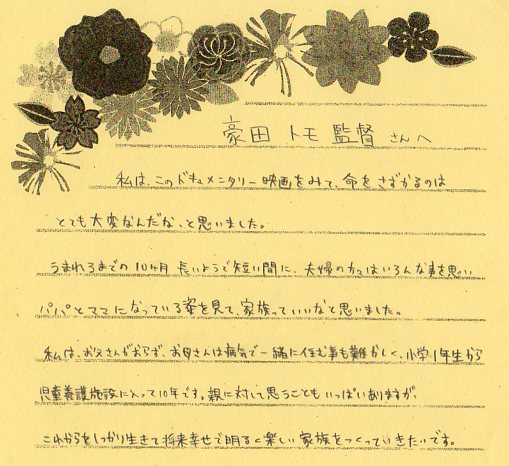 豪田トモ監督さんへ
私は、このドキュメンタリー映画をみて、命をさずかるのは
とても大変なんだな、と思いました。
うまれるまでの10ヶ月 長いようで短い間に、夫婦の方々はいろんな事を思い
パパとママになっている姿を見て、家族っていいなと思いました。
私は、お父さんがおらず、お母さんは病気で一緒に住む事も難かしく、小学1年生から
児童養護施設に入って10年です。親に対して思うこともいっぱいありますが、
これからをしっかり生きて将来幸せで明るく楽しい家族をつくっていきたいです。